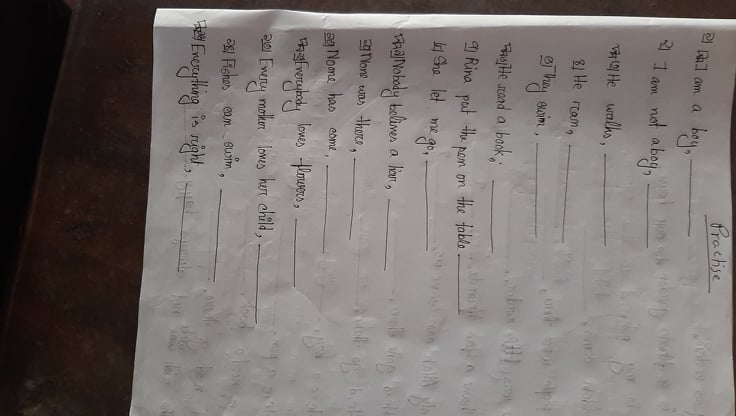 Practise
১) I am a boy, ________
২) I am not a boy, ________
৩) He walks, ________
৪) He ran, ________
৫) They swim, ________
৬) He read a book, ________
৭) Rina put the pen on the table ________
৮) She let me go, ________
৯) Nobody belives a liar, ________
১০) None was there, ________
১১) Noone has come, ________
১২) Everybody loves flowers, ________
১৩) Every mother loves her child, ________
১৪) Fishes can swim, ________
১৫) Everything is right, ________